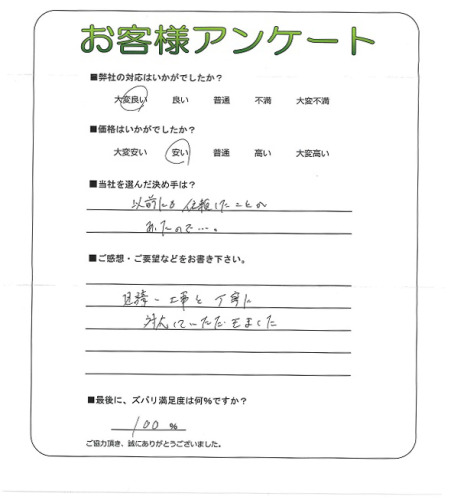 お客様アンケート
■弊社の対応はいかがでしたか?
大変良い 良い 普通 不満 大変不満
■価格はいかがでしたか?
大変安い 安い 普通 高い 大変高い
■当社を選んだ決め手は?
以前にも依頼したことが
あたので…。
■ご感想・ご要望などをお書き下さい。
連絡、工事と丁寧に
対応していただきました
■最後に、ズバリ満足度は何%ですか?
100 %
ご協力頂き、誠にありがとうございました。